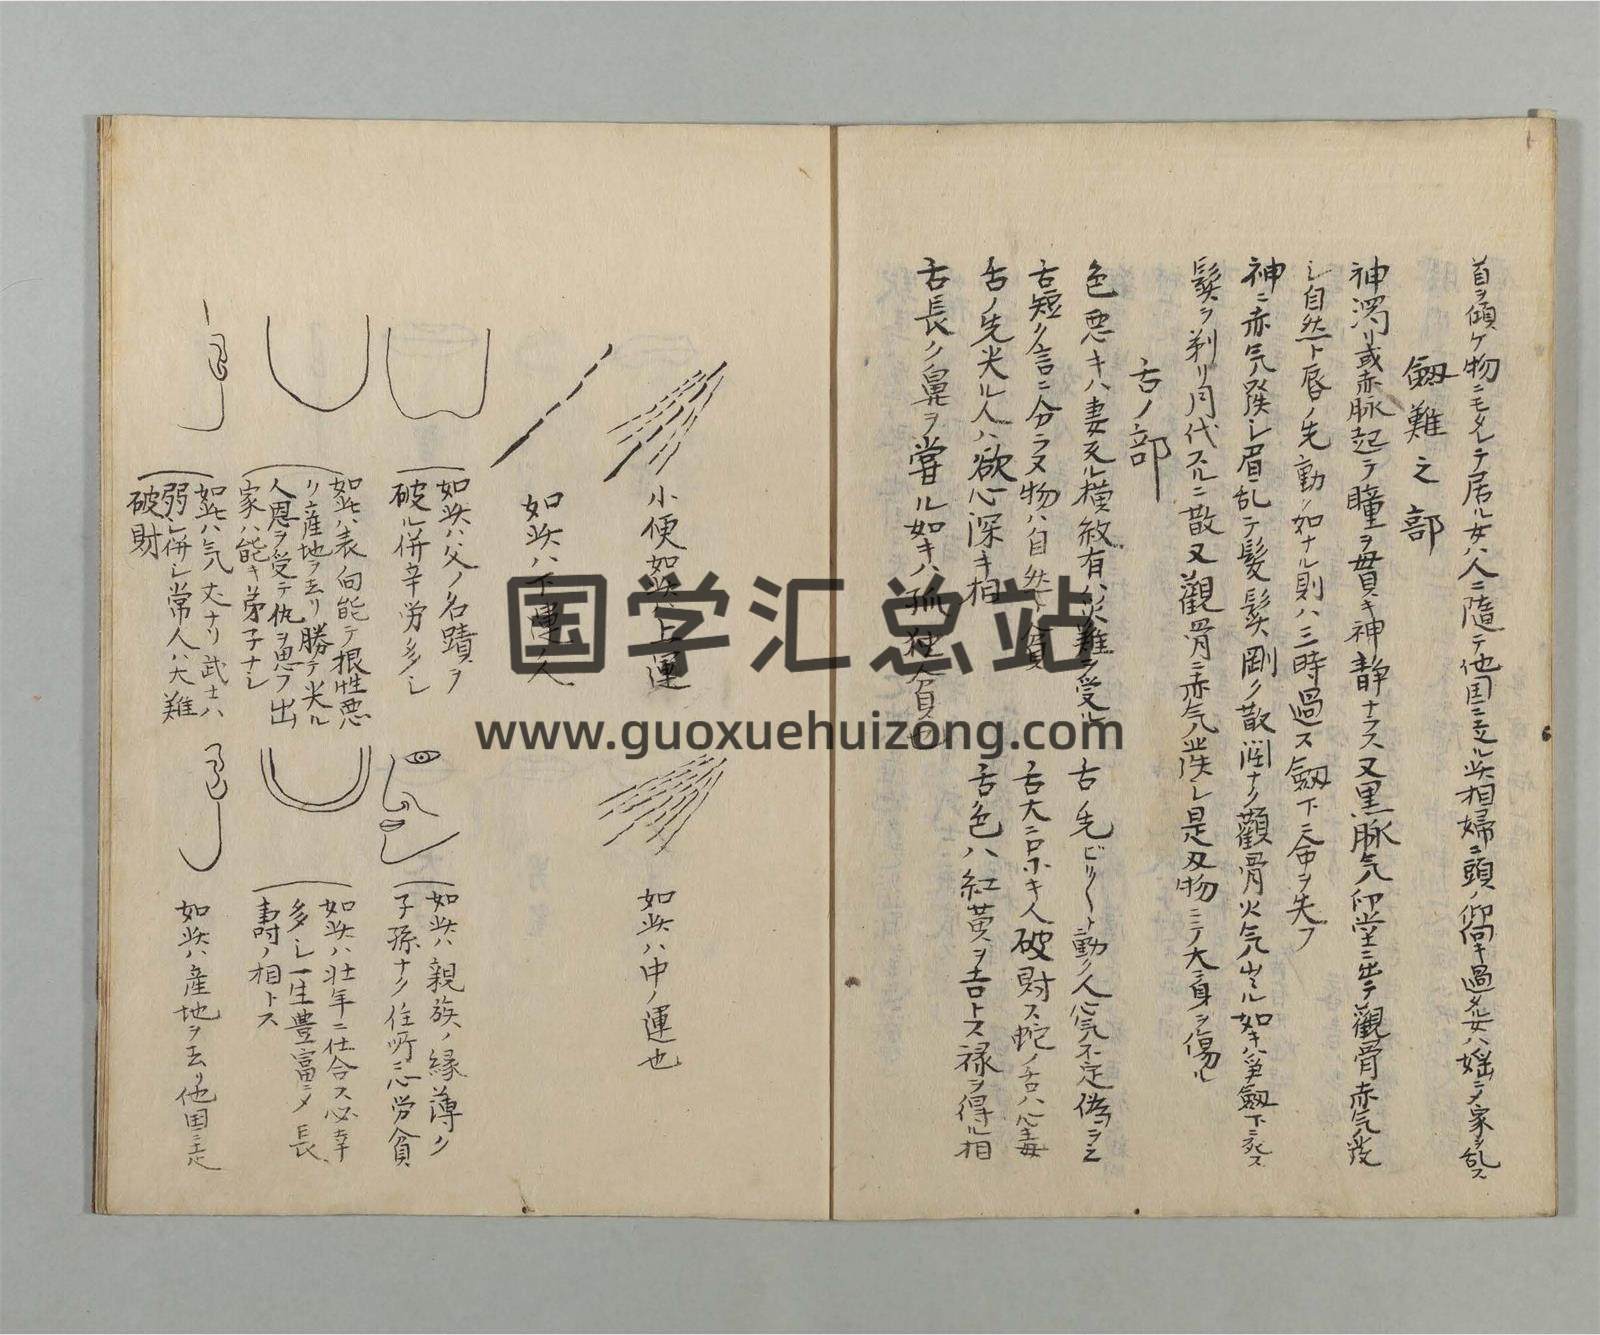 首ヲ傾ケ物ニモタレテ居ル女ハ人ニ隨テ他国ニ走ル此相婦ニ頭ノ仰向キ過タル女ハ婬ニメ家ヲ乱ス
劔難之部
神濁リ或赤脉起テ瞳ヲ貫キ神静ナラス又黒脉気印堂ニ出テ観骨赤气發
シ自然ト唇ノ先動ク如ナル則ハ三時過ス劔下ニ命ヲ失フ
神ニ赤気發シ眉乱テ髪髭剛ク散濶ナク顴骨火气出ル如キハ爭劔下ニ死ス
髪ヲ剃リ月代スルニ散又觀骨ニ赤气發レ是刄物ニテ大身ヲ傷ル
舌ノ部
色悪キハ妻又ル横紋有ハ災難ヲ受ル
舌先ビリ〱ト動ク人心气不定偽ヲ云
舌短ク言ニ分ラヌ物ハ自然ト貧
舌大ニロホキ人破財ス蛇ノ舌ハ心毒
舌ノ先尖ル人ハ欲心深キ相
舌色ハ紅黄ヲ吉トス禄ヲ得ル相
舌長ク鼻ヲ嘗ル如キハ孤独貧也
小便如此ハ上運
如此ハ中ノ運也
如此ハ下運ノ人
如此ハ父ノ名蹟ヲ
破ル併辛労多シ
如此ハ親族ノ縁薄ク
子孫ナク住所ニ心労貧
如此ハ表向能テ根性悪
リ産地ヲ去リ勝テ尖ル
人恩ヲ受テ仇ヲ思フ出
家ハ能キ弟子ナシ
如此ハ壮年ニ仕合ス必幸
多シ一生豊富ニメ長
壽ノ相トス
如此ハ气丈ナリ武士ハ
弱シ併シ常人ハ大難
破財
如此ハ産地ヲ去リ他国ニ走
国学汇总站
www.guoxuehuizong.com